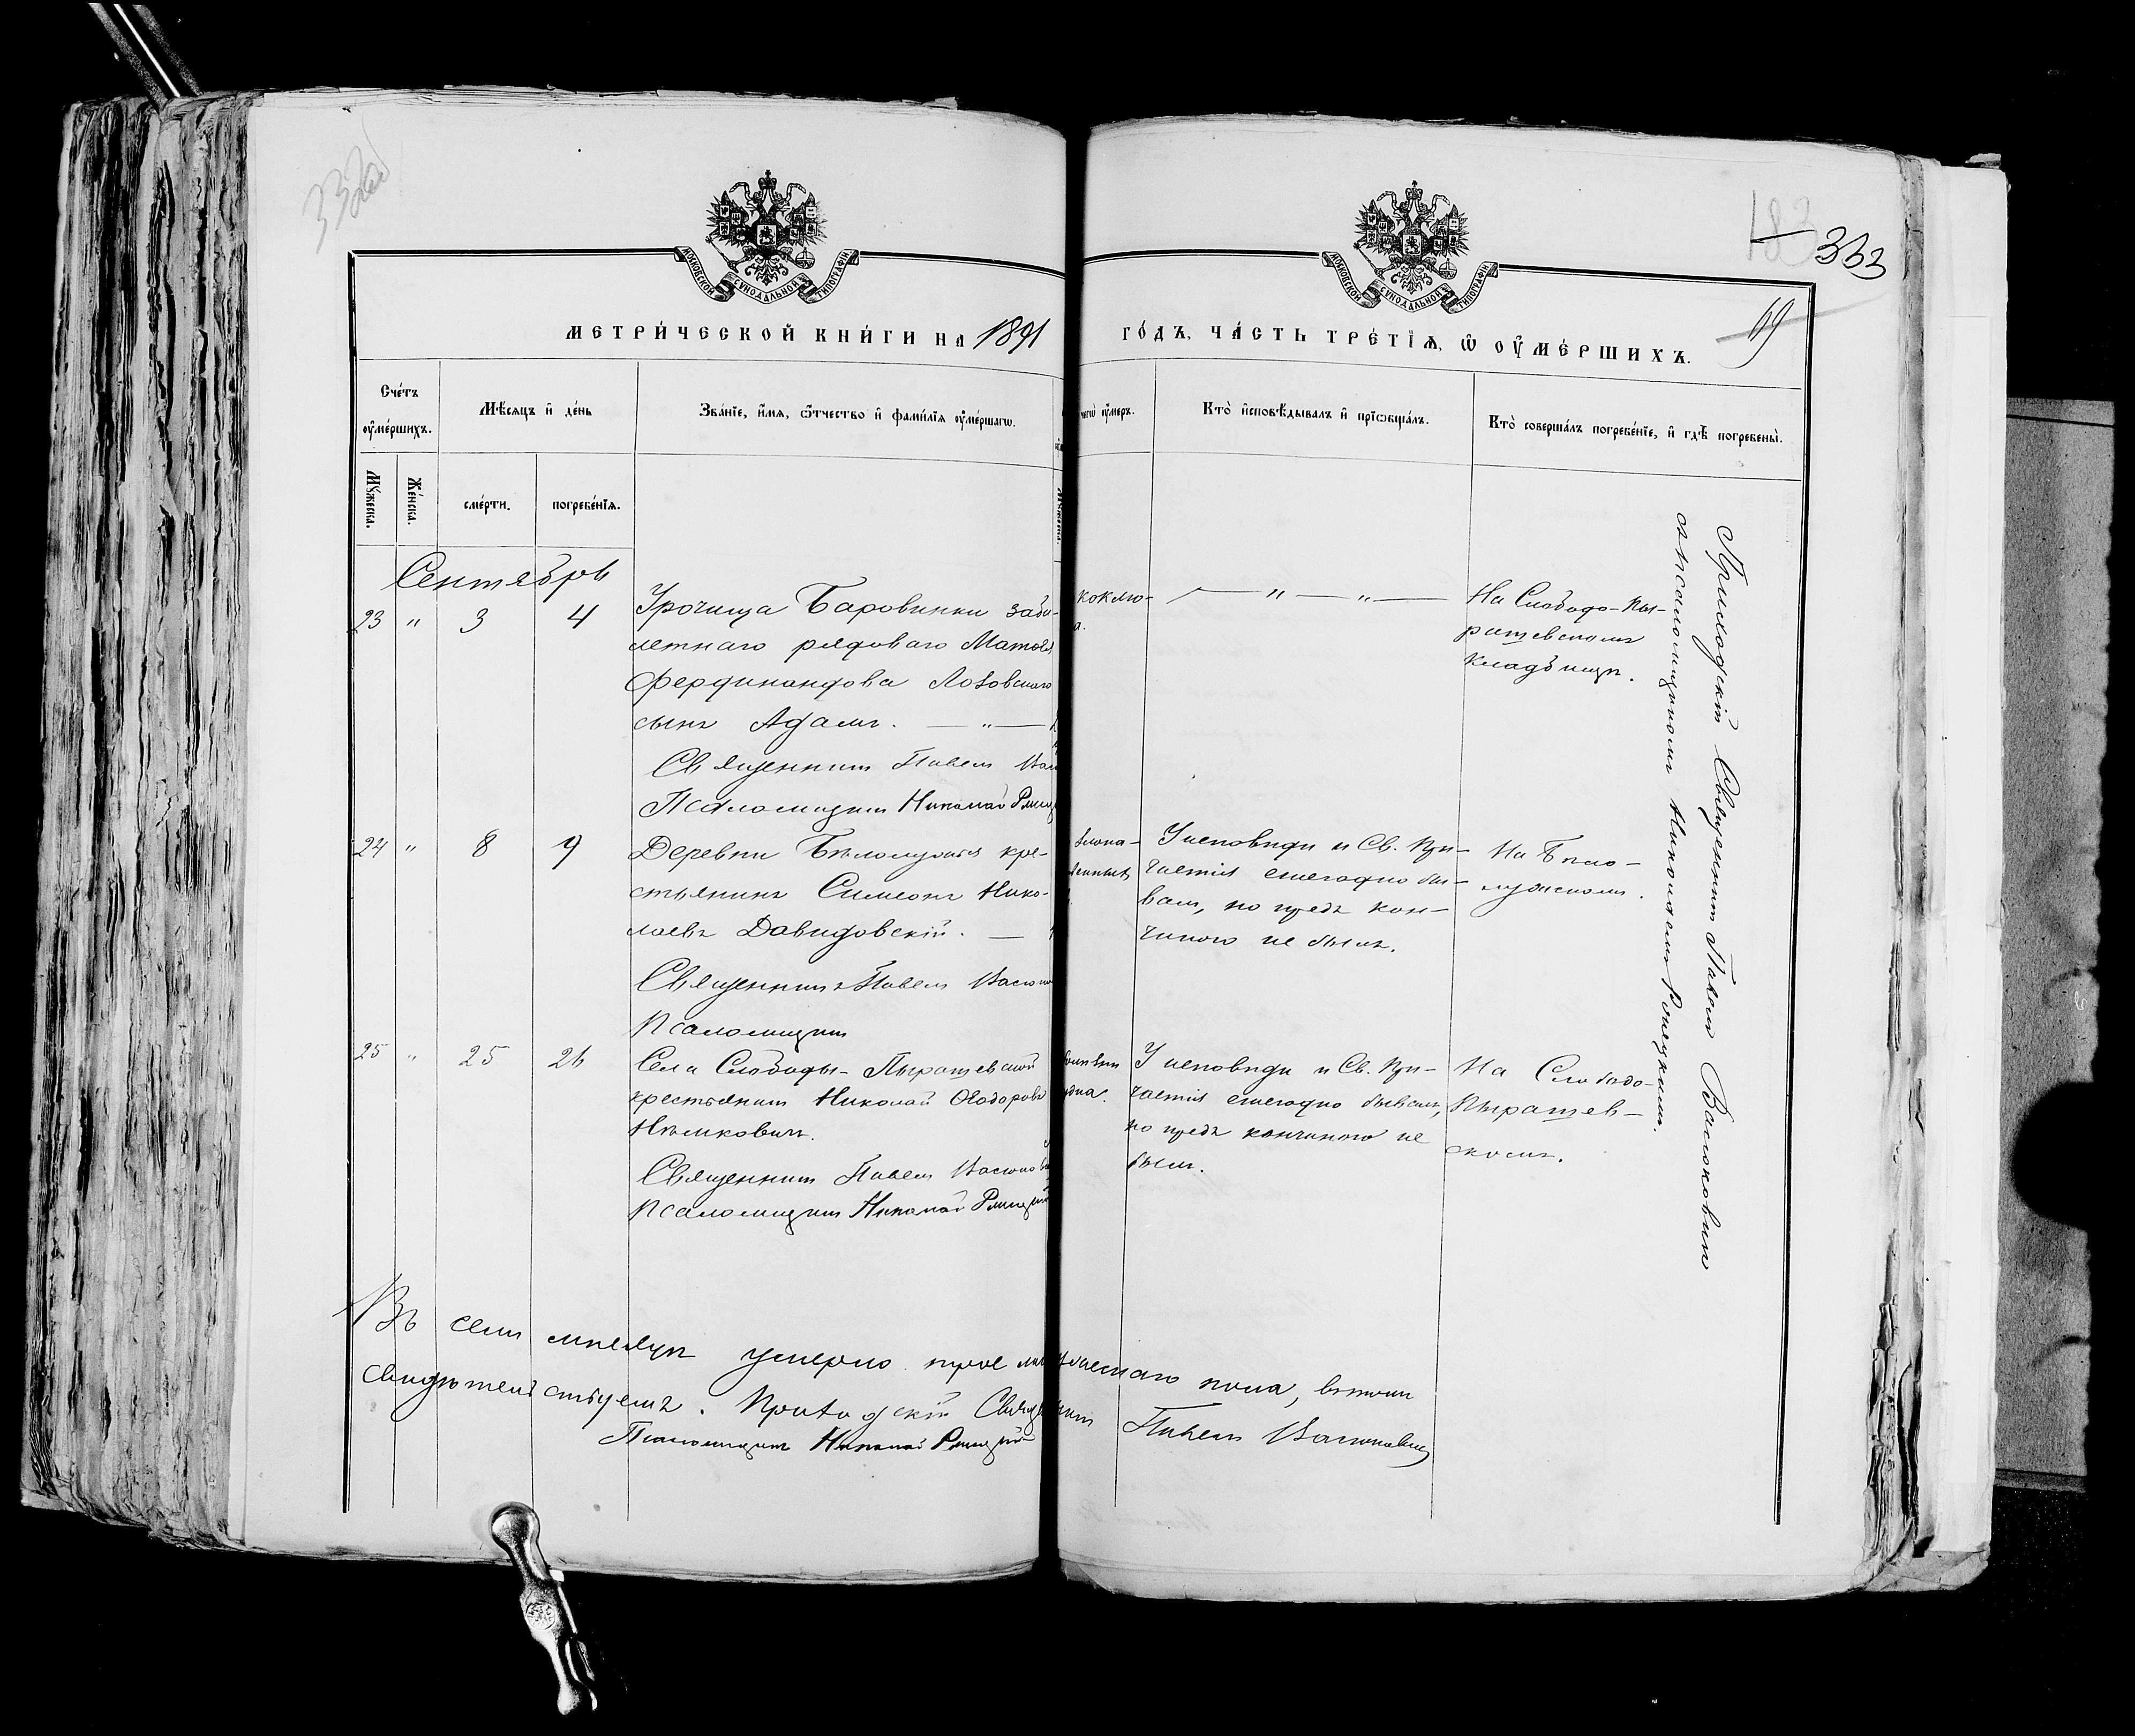 332об
183
333
МОСКОВСКОЙ СУНОДАЛЬНОЙ ТИПОГРАФІИ
МОСКОВСКОЙ СУНОДАЛЬНОЙ ТИПОГРАФІИ
МЕТРИ́ЧЕСКОЙ КНИ́ГИ НА 1891
ГО́ДЪ, ЧА́СТЬ ТРЕ́ТІѦ, Ѽ ОУ҆МЕ́РШИХЪ.
Сче́тъ оу҆ме́ршихъ.
Мѣ́сѧцъ и҆ де́нь
Зва́нїе, и҆́мѧ, ѻ҆́тчество и҆ фами́лїѧ оу҆ме́ршагѡ.
чегѡ̀ оу҆́меръ.
Кто̀ и҆сповѣ́дывалъ и҆ прїѡбща́лъ.
Кто̀ соверша́лъ погребе́нїе, и҆ гдѣ̀ погребены̀.
Мꙋ́жеска.
Же́нска.
сме́рти.
погребе́нїѧ.
Сентябрь
23 " 3 4
Урочища Боровинки заби-
летнаго рядоваго Матвѣя
Фердинандова Лозовскаго
сынъ Адамъ. — " —
Священникъ Павелъ
Псаломщикъ Николай
коклю-
а.
— " — " —
На Слободо-Пы-
рашевскомъ
кладбищѣ.
24 " 8 9
Деревни Бѣлолужья кре-
стьянинъ Симеонъ Нико-
лаевъ Давидовскій. —
Священникъ Павелъ
Псаломщикъ
У исповѣди и Св. При-
частія ежегодно бы-
валъ, но предъ кон-
чиною не былъ.
На Бѣло-
лужскомъ.
25 " 25 26
Села Слободы-Пырашевской
крестьянинъ Николай Ѳеодоровъ
Нѣмковичъ.
Священникъ Павелъ
Псаломщикъ Николай
У исповѣди и Св. При-
частія ежегодно бывалъ,
но предъ кончиною не
былъ.
На Слободо-
Пырашев-
скомъ.
Приходскій Священникъ Павелъ Васюковичъ
съ псаломщикомъ Николаемъ
Въ семъ мѣсяцѣ умерло трое мужескаго пола, въ томъ
свидѣтельствуемъ. Приходскій Священникъ Павелъ Васюковичъ
Псаломщикъ Николай